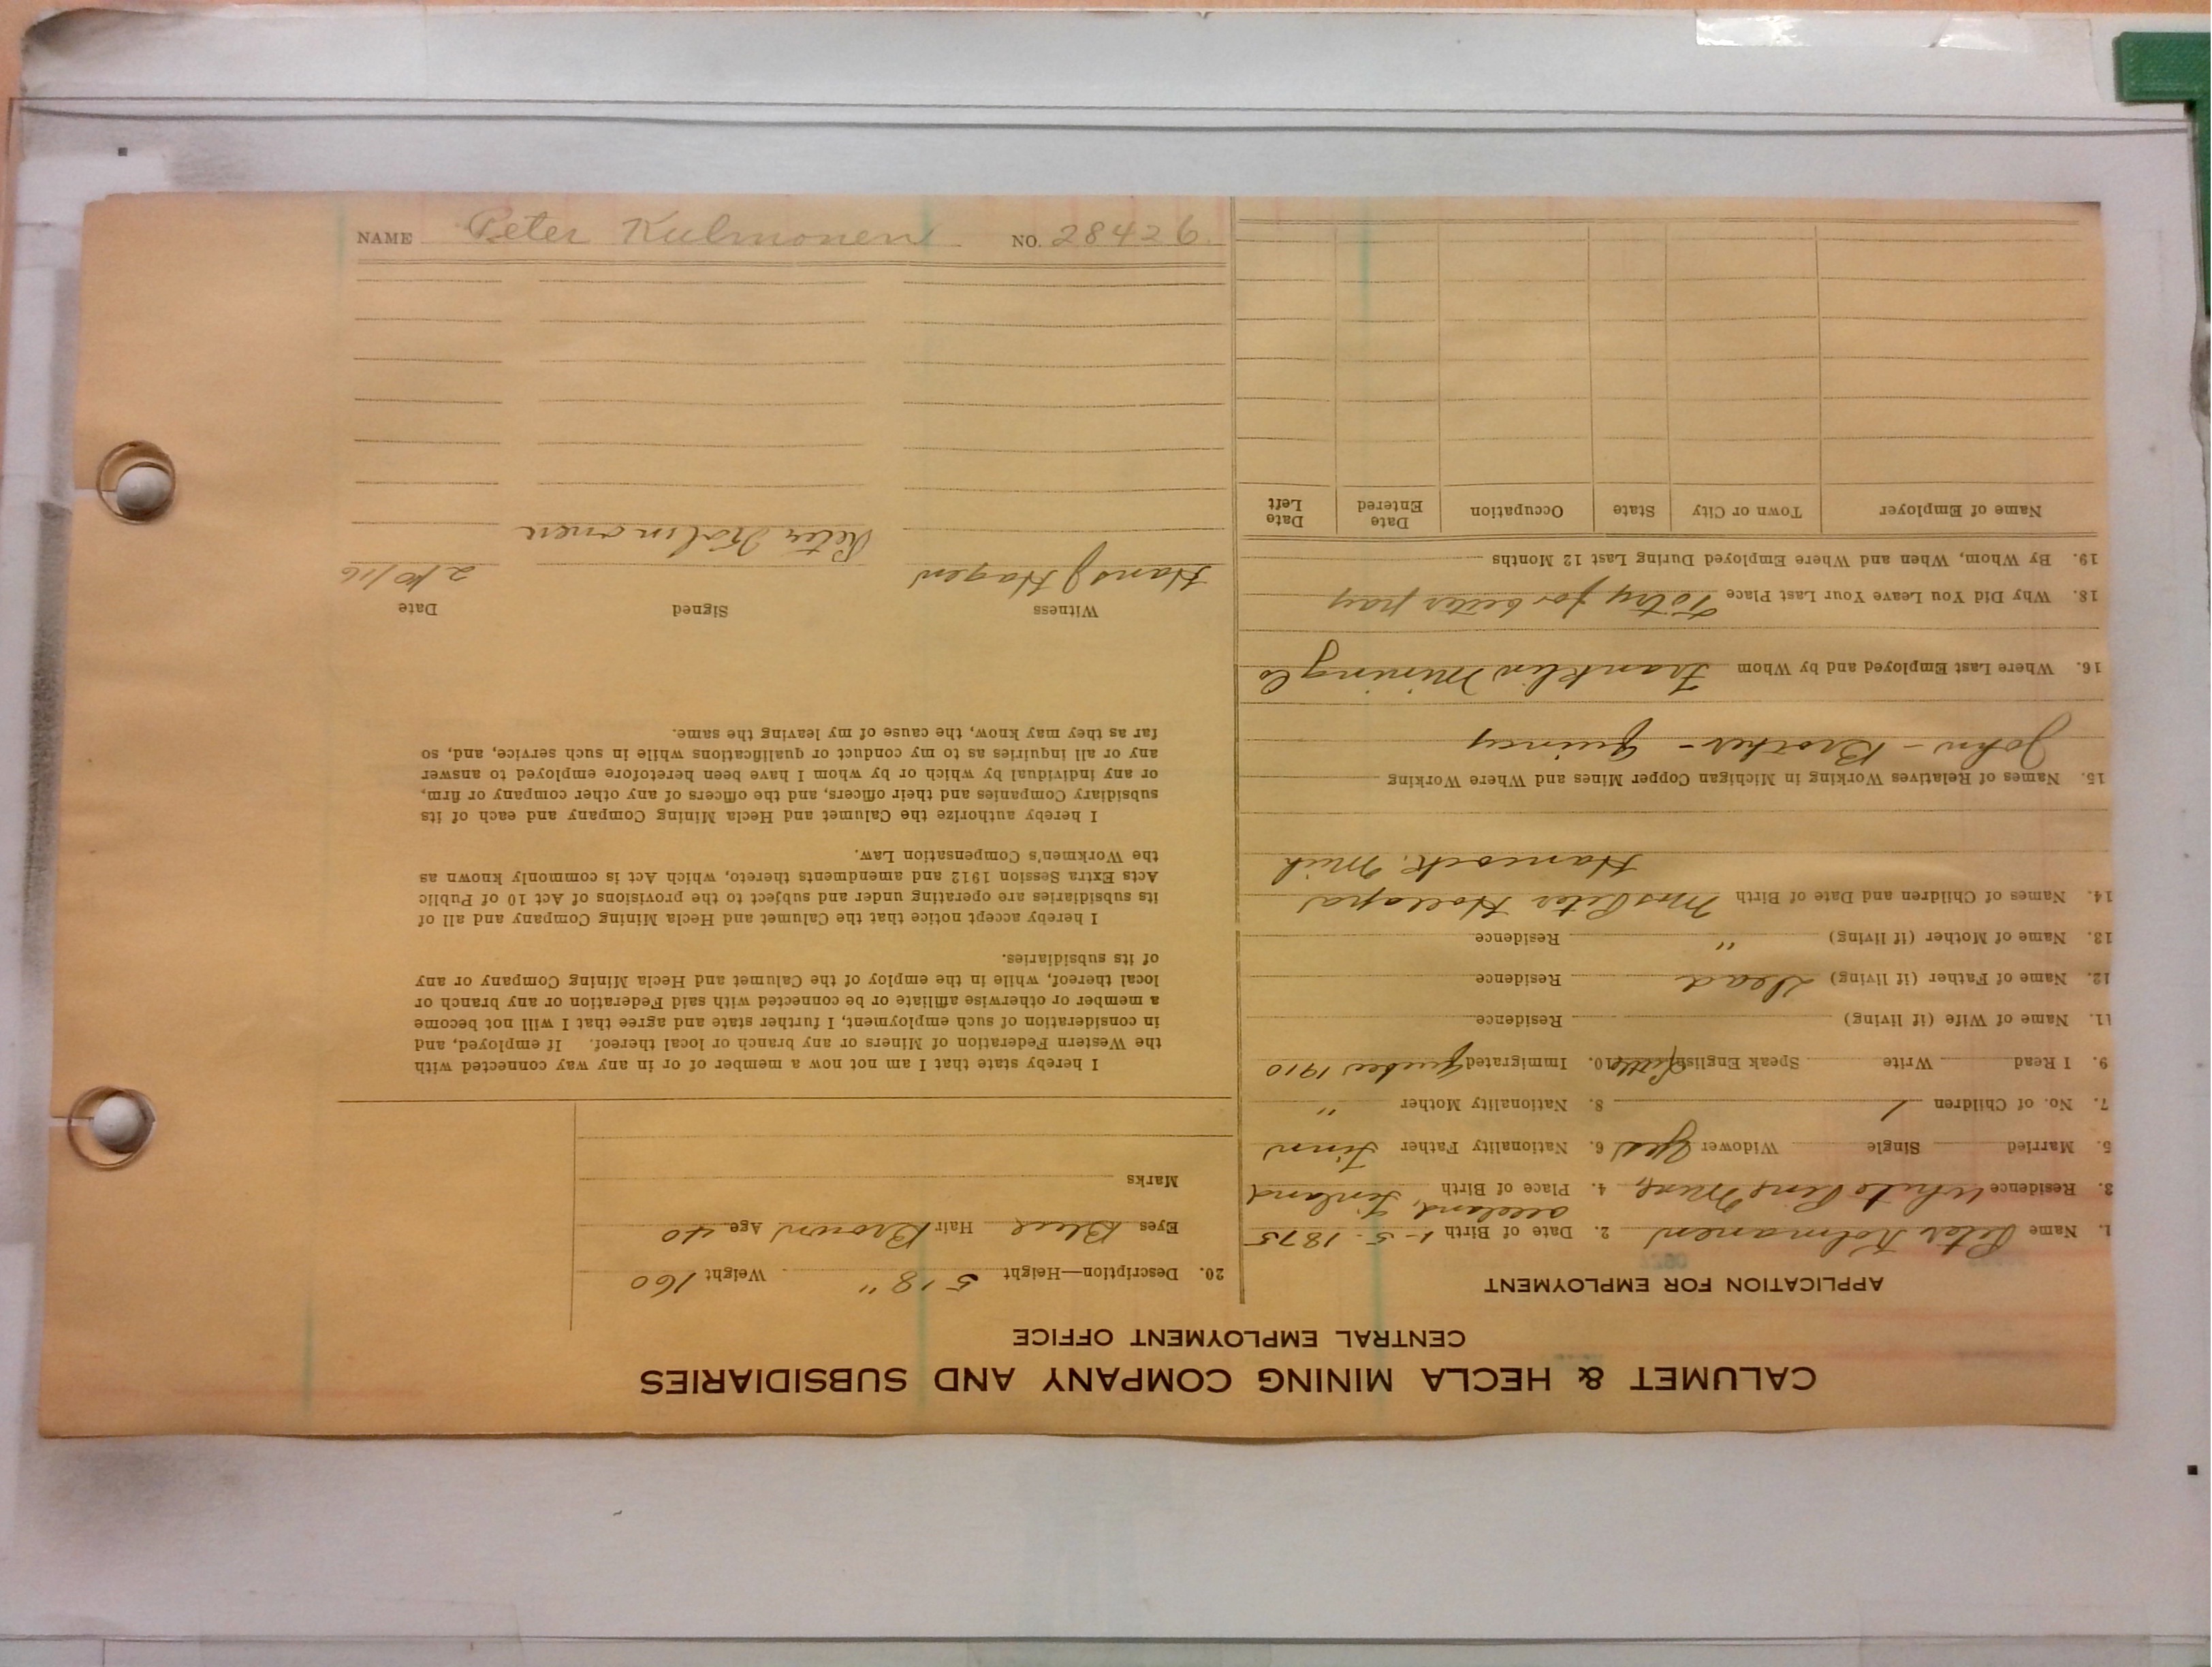 CALUMET & HECLA MINING COMPANY AND SUBSIDIARIES
CENTRAL EMPLOYMENT OFFICE
APPLICATION FOR EMPLOYMENT
1. Name Peter Kolmanen 2. Date of Birth 1-5-1875
3. Residence White Pine Mine, 4. Place of Birth Finland
5. Married Single Widower Yes 6. Nationality Father Finn
7. No. of Children 1 8. Nationality Mother "
9. I Read Write Speak English Little 10. Immigrated 1910
11. Name of Wife (if living) Residence
12. Name of Father (if living) Dead Residence
13. Name of Mother (if living) " Residence
14. Names of Children and Date of Birth Mrs Peter
Hancock. Mich
15. Names of Relatives Working in Michigan Copper Mines and Where Working
John - Brother - Quincy
16. Where Last Employed and by Whom Franklin Mining Co
18. Why Did You Leave Your Last Place To try for better pay
19. By Whom, When and Where Employed During Last 12 Months
Name of Employer Town or City State Occupation Date Entered Date Left
20. Description—Height 5' 8" Weight 160
Eyes Blue Hair Brown Age 40
Marks
I hereby state that I am not now a member of or in any way connected with
the Western Federation of Miners or any branch or local thereof. If employed, and
in consideration of such employment, I further state and agree that I will not become
a member or otherwise affiliate or be connected with said Federation or any branch or
local thereof, while in the employ of the Calumet and Hecla Mining Company or any
of its subsidiaries.
I hereby accept notice that the Calumet and Hecla Mining Company and all of
its subsidiaries are operating under and subject to the provisions of Act 10 of Public
Acts Extra Session 1912 and amendments thereto, which Act is commonly known as
the Workmen's Compensation Law.
I hereby authorize the Calumet and Hecla Mining Company and each of its
subsidiary Companies and their officers, and the officers of any other company or firm,
or any individual by which or by whom I have been heretofore employed to answer
any or all inquiries as to my conduct or qualifications while in such service, and, so
far as they may know, the cause of my leaving the same.
Witness Signed Date
Hans J Hagen Peter Kolmonen 2/10/16
NAME Peter Kulmonen NO. 28426